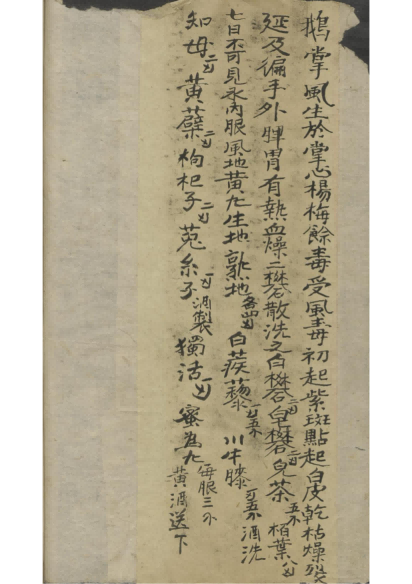 鵝掌風生於掌心楊梅餘毒受風毒初起紫斑點起白皮乾枯燥裂
延及徧手外脾胃有熱血燥二礬散洗之白礬二刄皂礬二刄兒茶五不栢葉八刄
七日不可見水內服風地黃丸生地熟地各四刄白蒺藜二刄五不川牛膝刄五不酒洗
知母二刄黃蘗二刄枸杞子二刄菟糸子一刄酒製獨活一刄蜜為丸每服三不黃酒送下